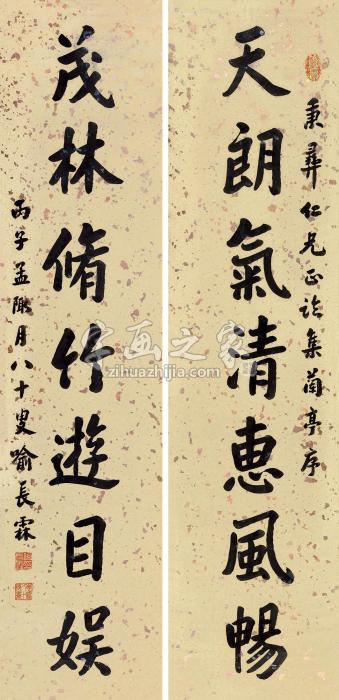 秉彝仁兄正論集蘭亭序
天朗氣清惠風暢
茂林脩竹遊目娱
丙子孟陬月八十叟喻長霖
字画之家
zihuazhijia.com